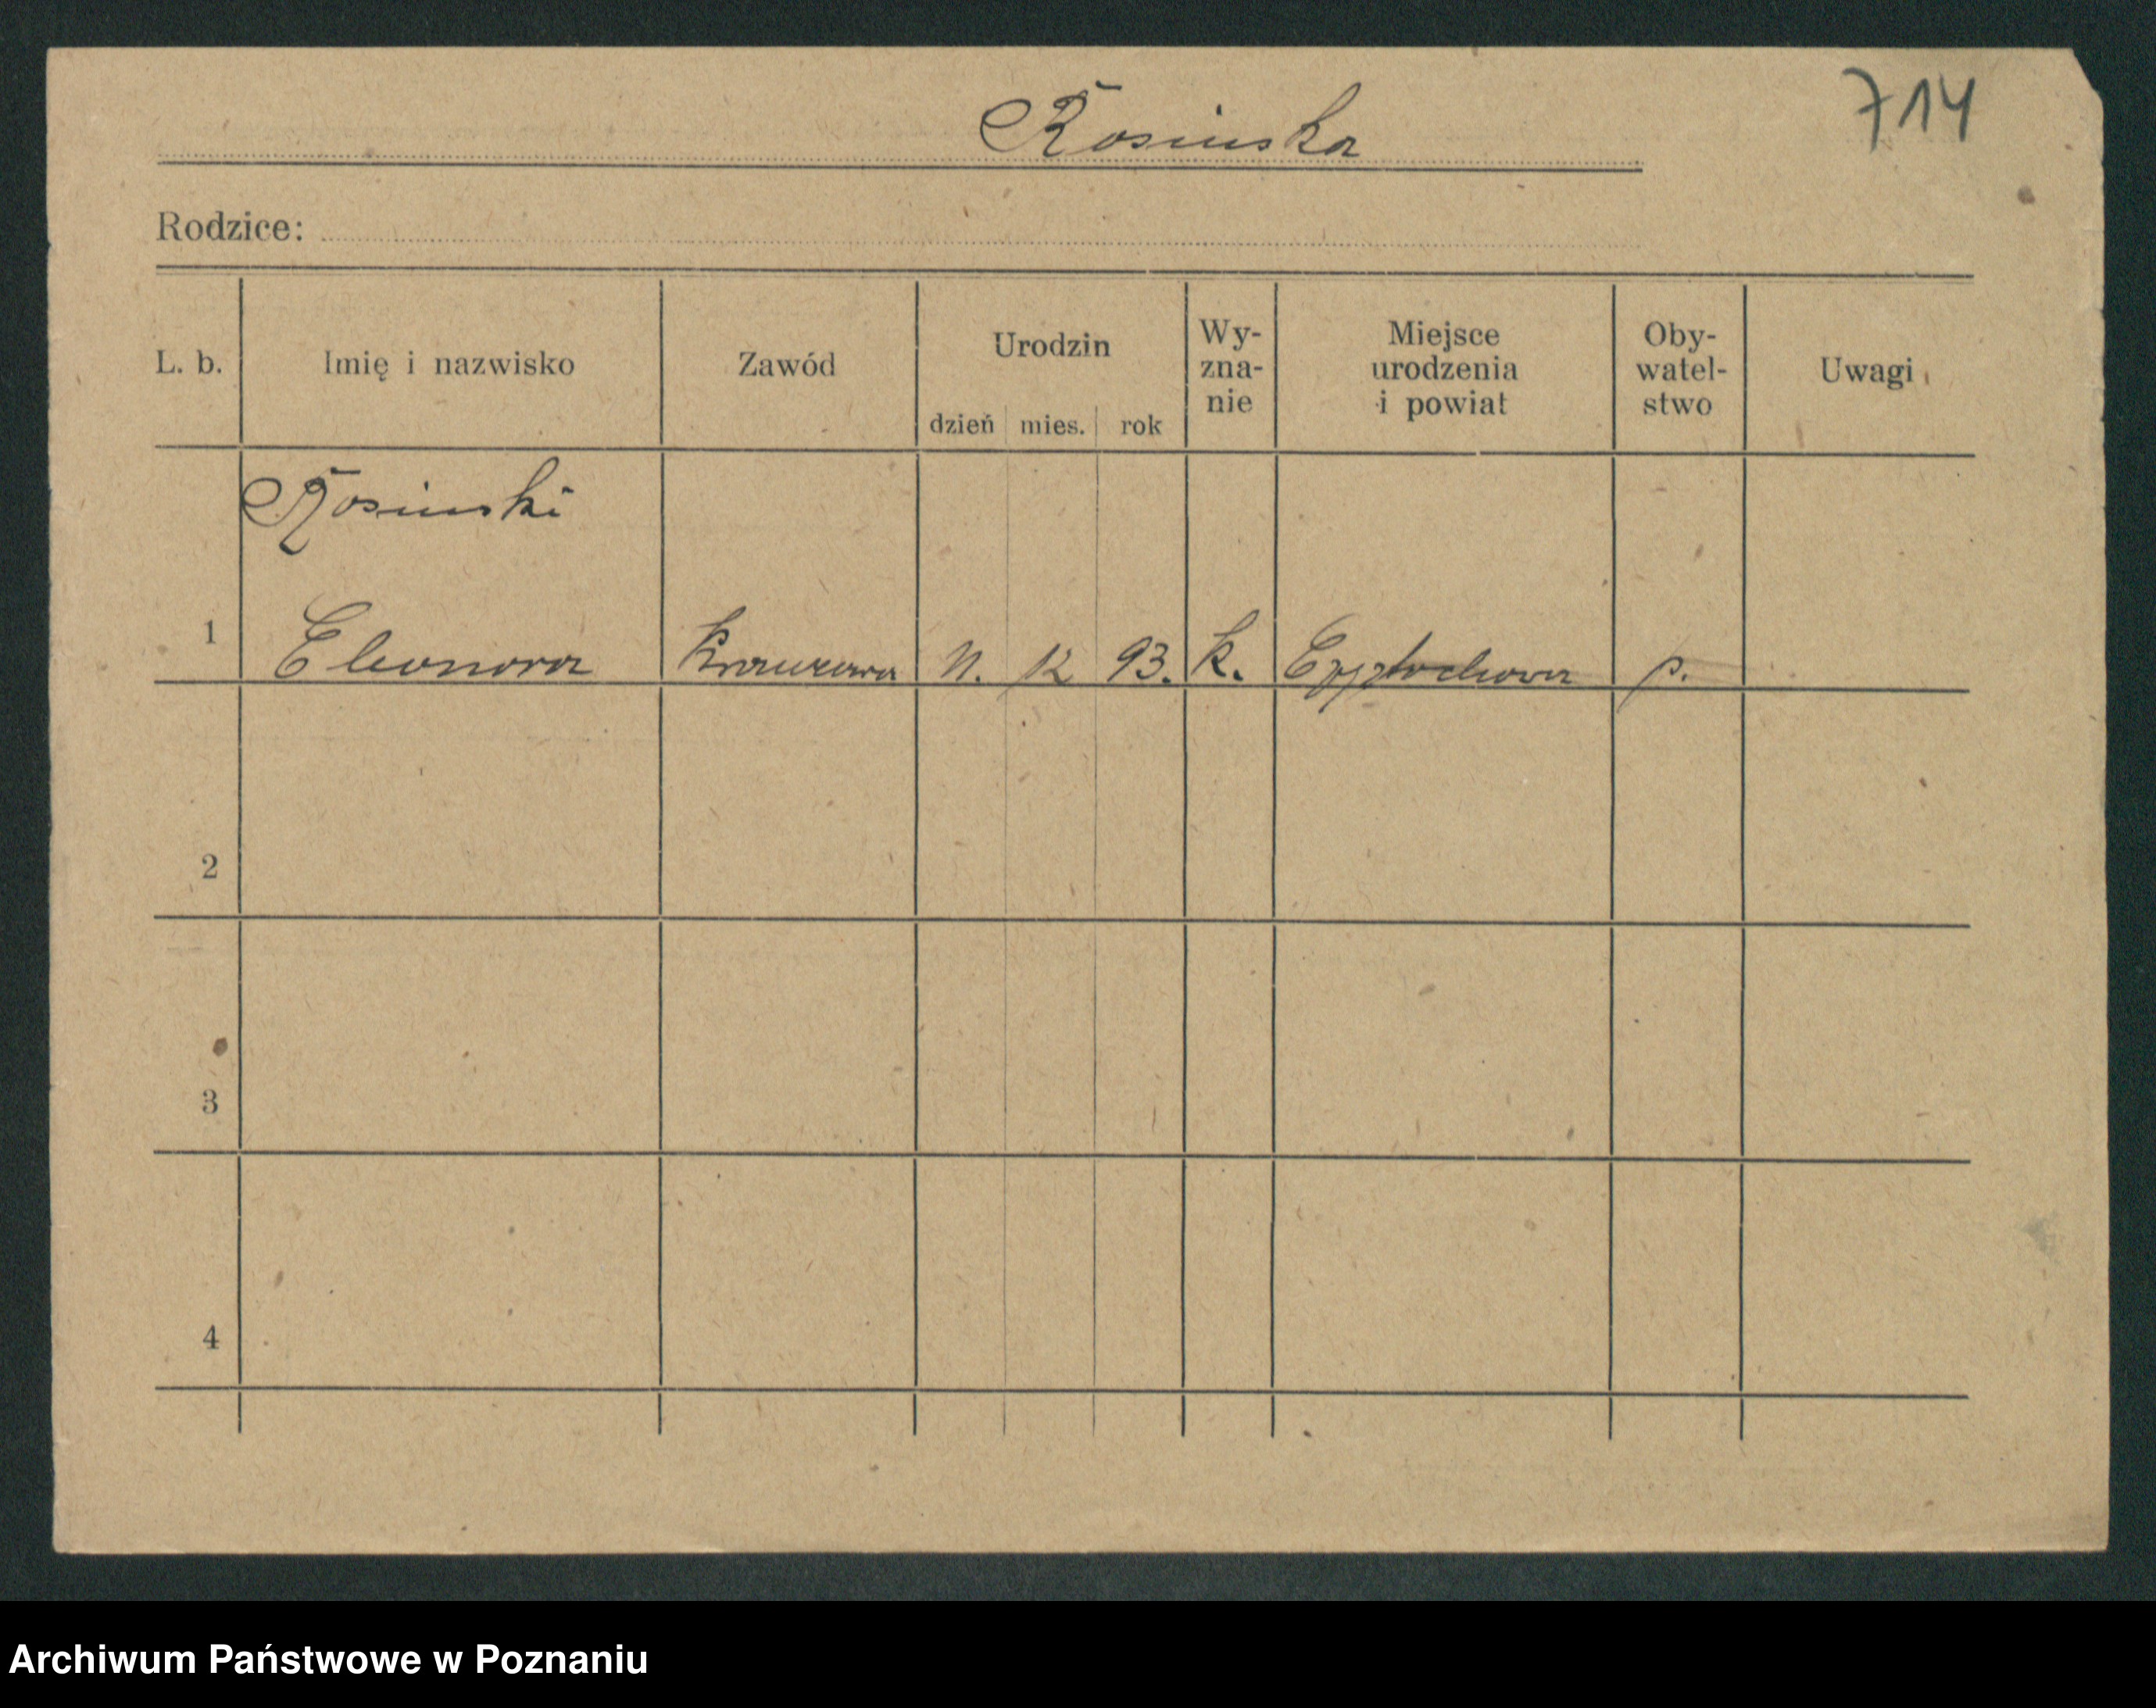 Rosinska
714
Rodzice:
L. b. Imię i nazwisko Zawód Urodzin dzień mies. rok Wy-zna-nie Miejsce urodzenia i powiat Oby-watel-stwo Uwagi
Rosinski
1 Eleonora 11. 12 93. k. p.
2
3
4
Archiwum Państwowe w Poznaniu